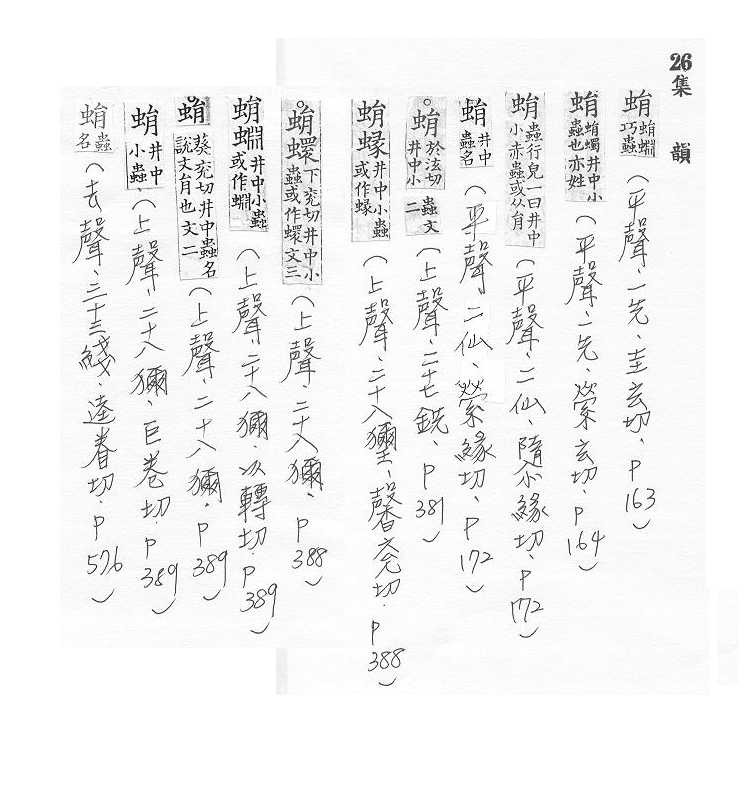 26 集 韻
蜎 蜎蜵巧蟲 (平聲、一先、圭玄切、P163)
蜎 蜎蠋井中小蟲也亦姓 (平聲、一先、縈玄切、P164)
蜎 蟲行皃一曰井中小赤蟲或从肙 (平聲、二仙、隳緣切、P172)
蜎 井中蟲名 (平聲、二仙、縈緣切、P172)
蜎 於泫切井中小蟲文二 (上聲、二十七銑、P381)
蜎蝝 井中小蟲或作蝝 (上聲、二十八獮、馨兗切、P388)
蜎蠉 下兗切井中小蟲或作蠉文三 (上聲、二十八獮、P388)
蜎蜵 井中小蟲或作蜵 (上聲、二十八獮、以轉切、P389)
蜎 葵兗切井中蟲名說文肙也文二 (上聲、二十八獮、P389)
蜎 井中小蟲 (上聲、二十八獮、巨卷切、P389)
蜎 蟲名 (去聲、三十三綫、逵眷切、P576)